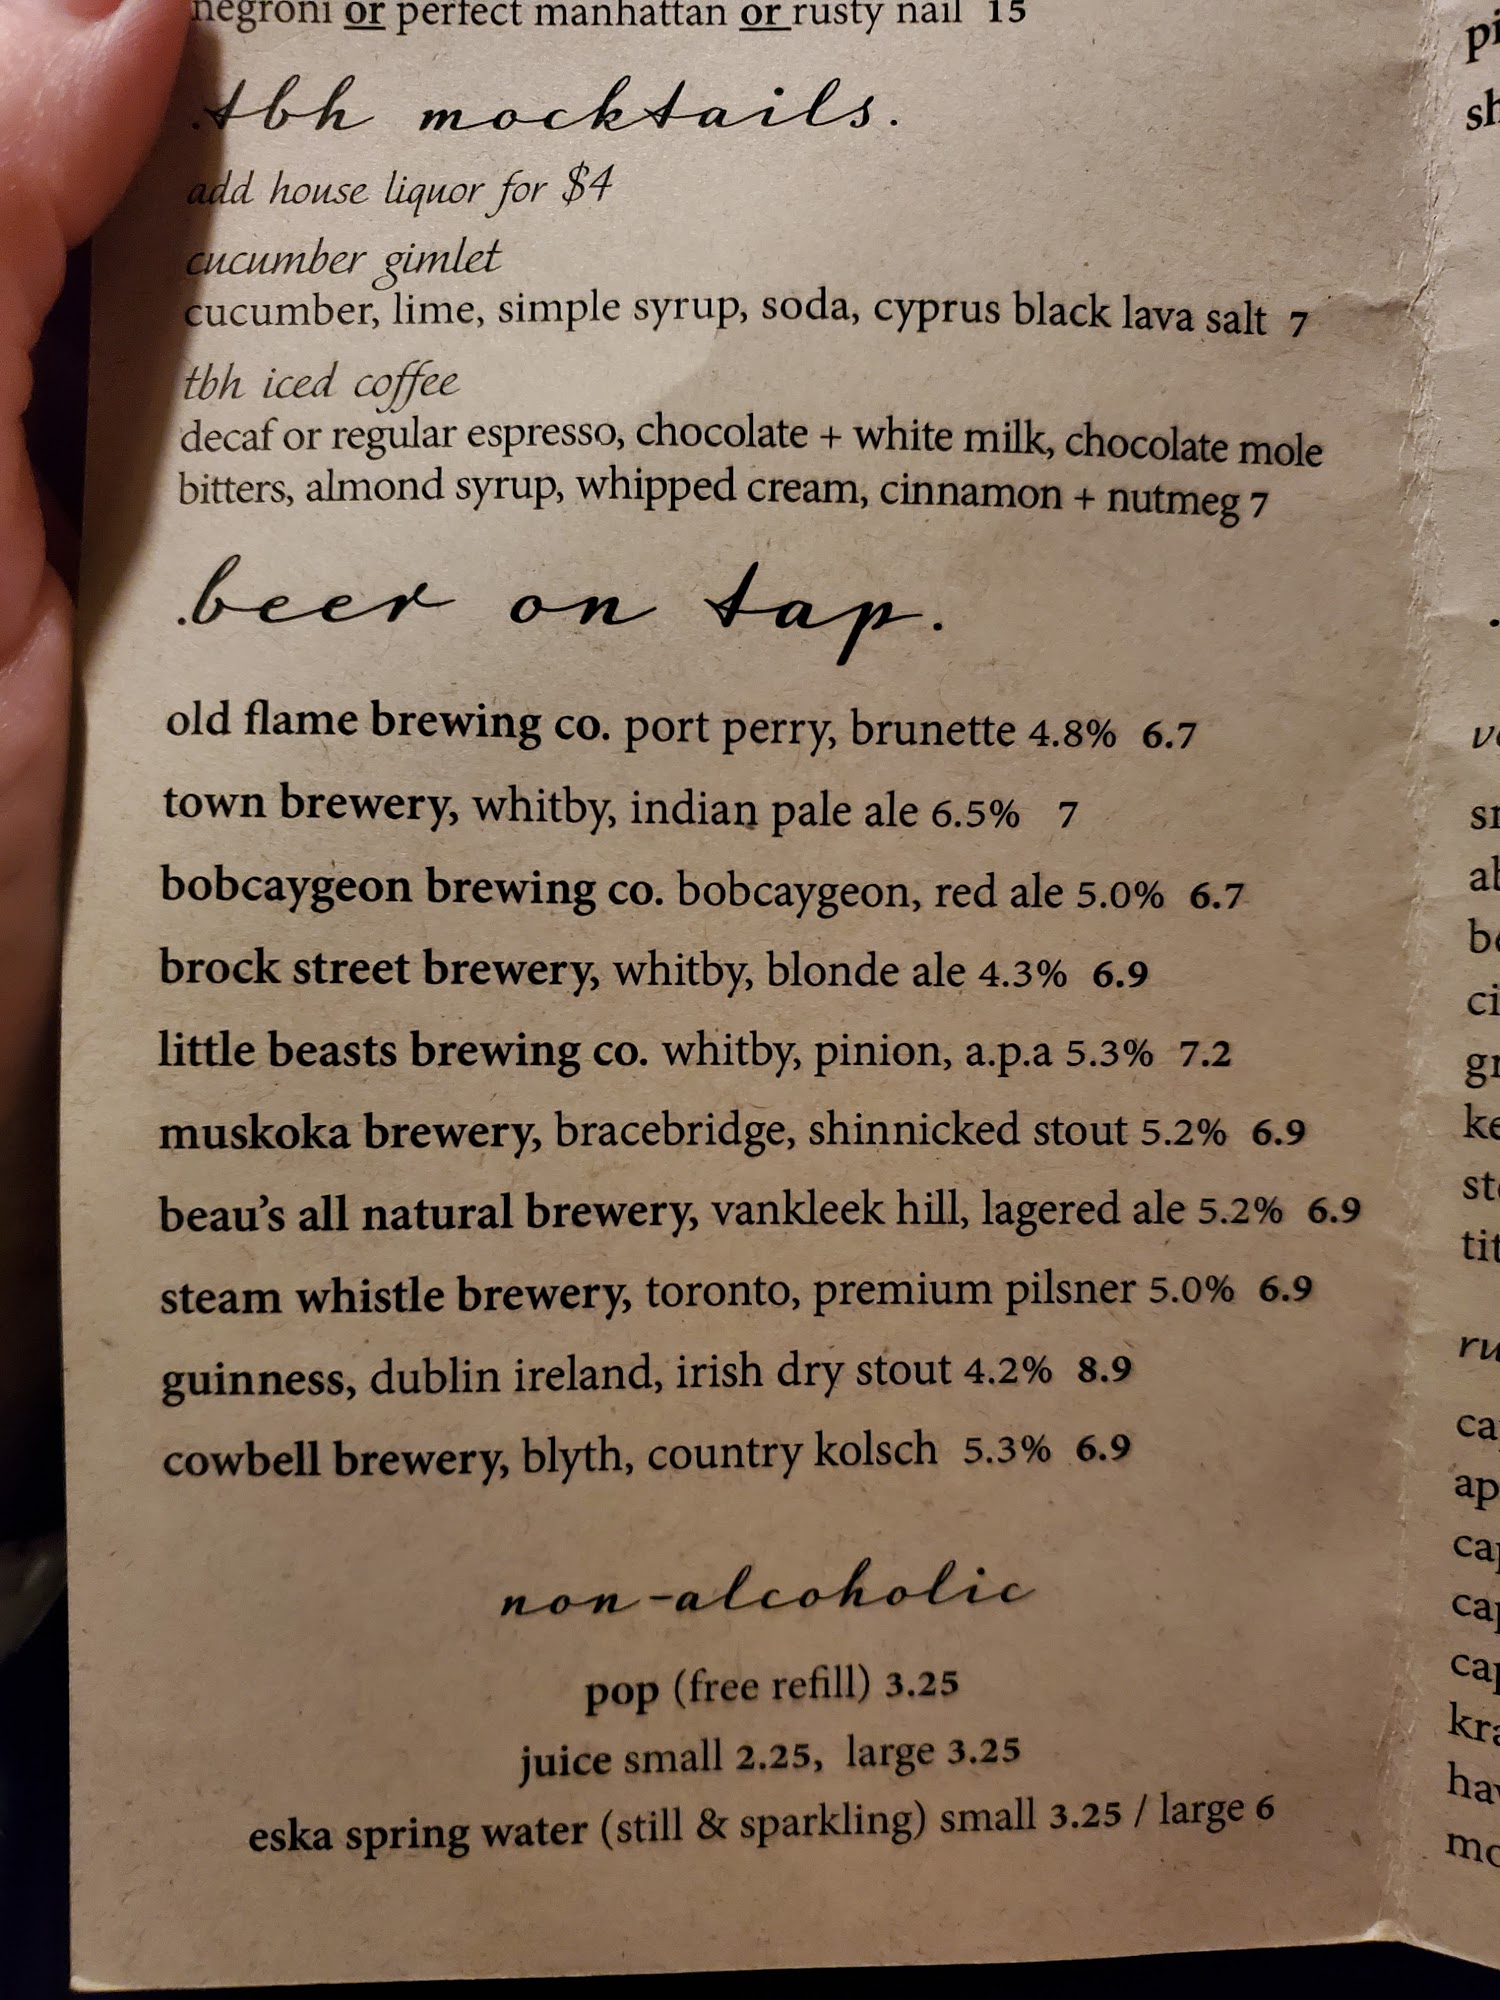 negroni or perfect manhattan or rusty nail 15
.tbh mocktails.
add house liquor for $4
cucumber gimlet
cucumber, lime, simple syrup, soda, cyprus black lava salt 7
tbh iced coffee
decaf or regular espresso, chocolate + white milk, chocolate mole
bitters, almond syrup, whipped cream, cinnamon + nutmeg 7
.beer on tap.
old flame brewing co. port perry, brunette 4.8% 6.7
town brewery, whitby, indian pale ale 6.5% 7
bobcaygeon brewing co. bobcaygeon, red ale 5.0% 6.7
brock street brewery, whitby, blonde ale 4.3% 6.9
little beasts brewing co. whitby, pinion, a.p.a 5.3% 7.2
muskoka brewery, bracebridge, shinnicked stout 5.2% 6.9
beau's all natural brewery, vankleek hill, lagered ale 5.2% 6.9
steam whistle brewery, toronto, premium pilsner 5.0% 6.9
guinness, dublin ireland, irish dry stout 4.2% 8.9
cowbell brewery, blyth, country kolsch 5.3% 6.9
non-alcoholic
pop (free refill) 3.25
juice small 2.25, large 3.25
eska spring water (still & sparkling) small 3.25 / large 6